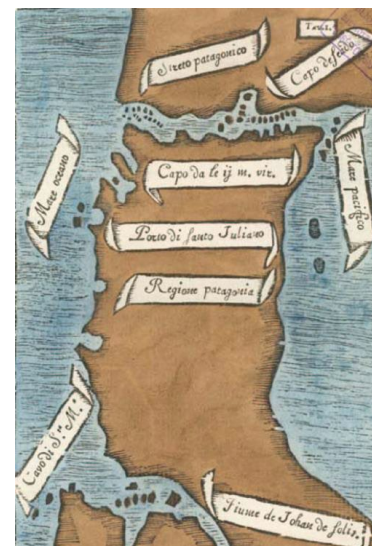 Streto patagonico
Capo deseado
Mare oceano
Mare pacifico
Capo da le ij m. vir.
Porto di santo Juliano
Regione patagonia
Cavo di S.ta M.a
Fiume de Johan de solis.